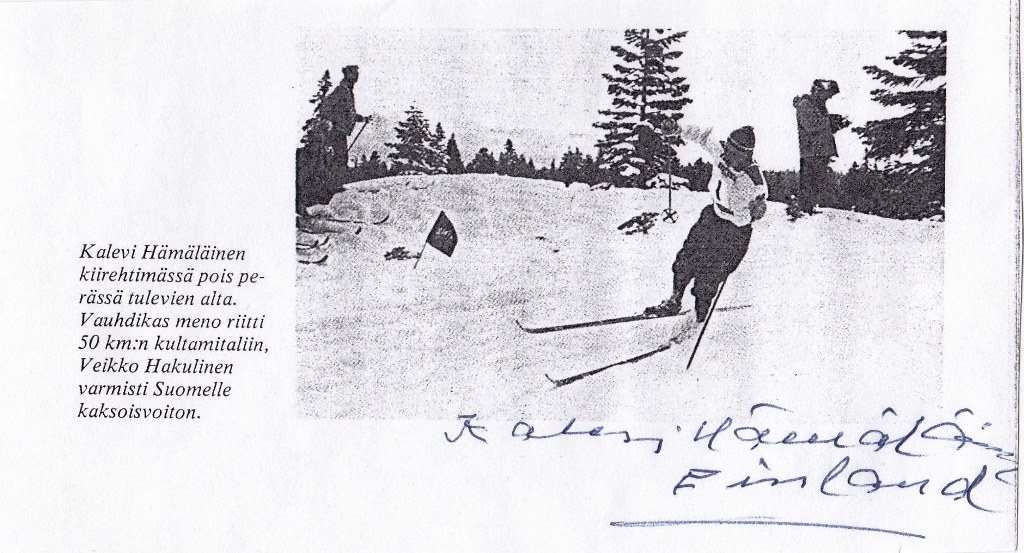 Kalevi Hämäläinen
kiirehtimässä pois pe-
rässä tulevien alta.
Vauhdikas meno riitti
50 km:n kultamitaliin,
Veikko Hakulinen
varmisti Suomelle
kaksoisvoiton.
Kalevi Hämäläin
Finland